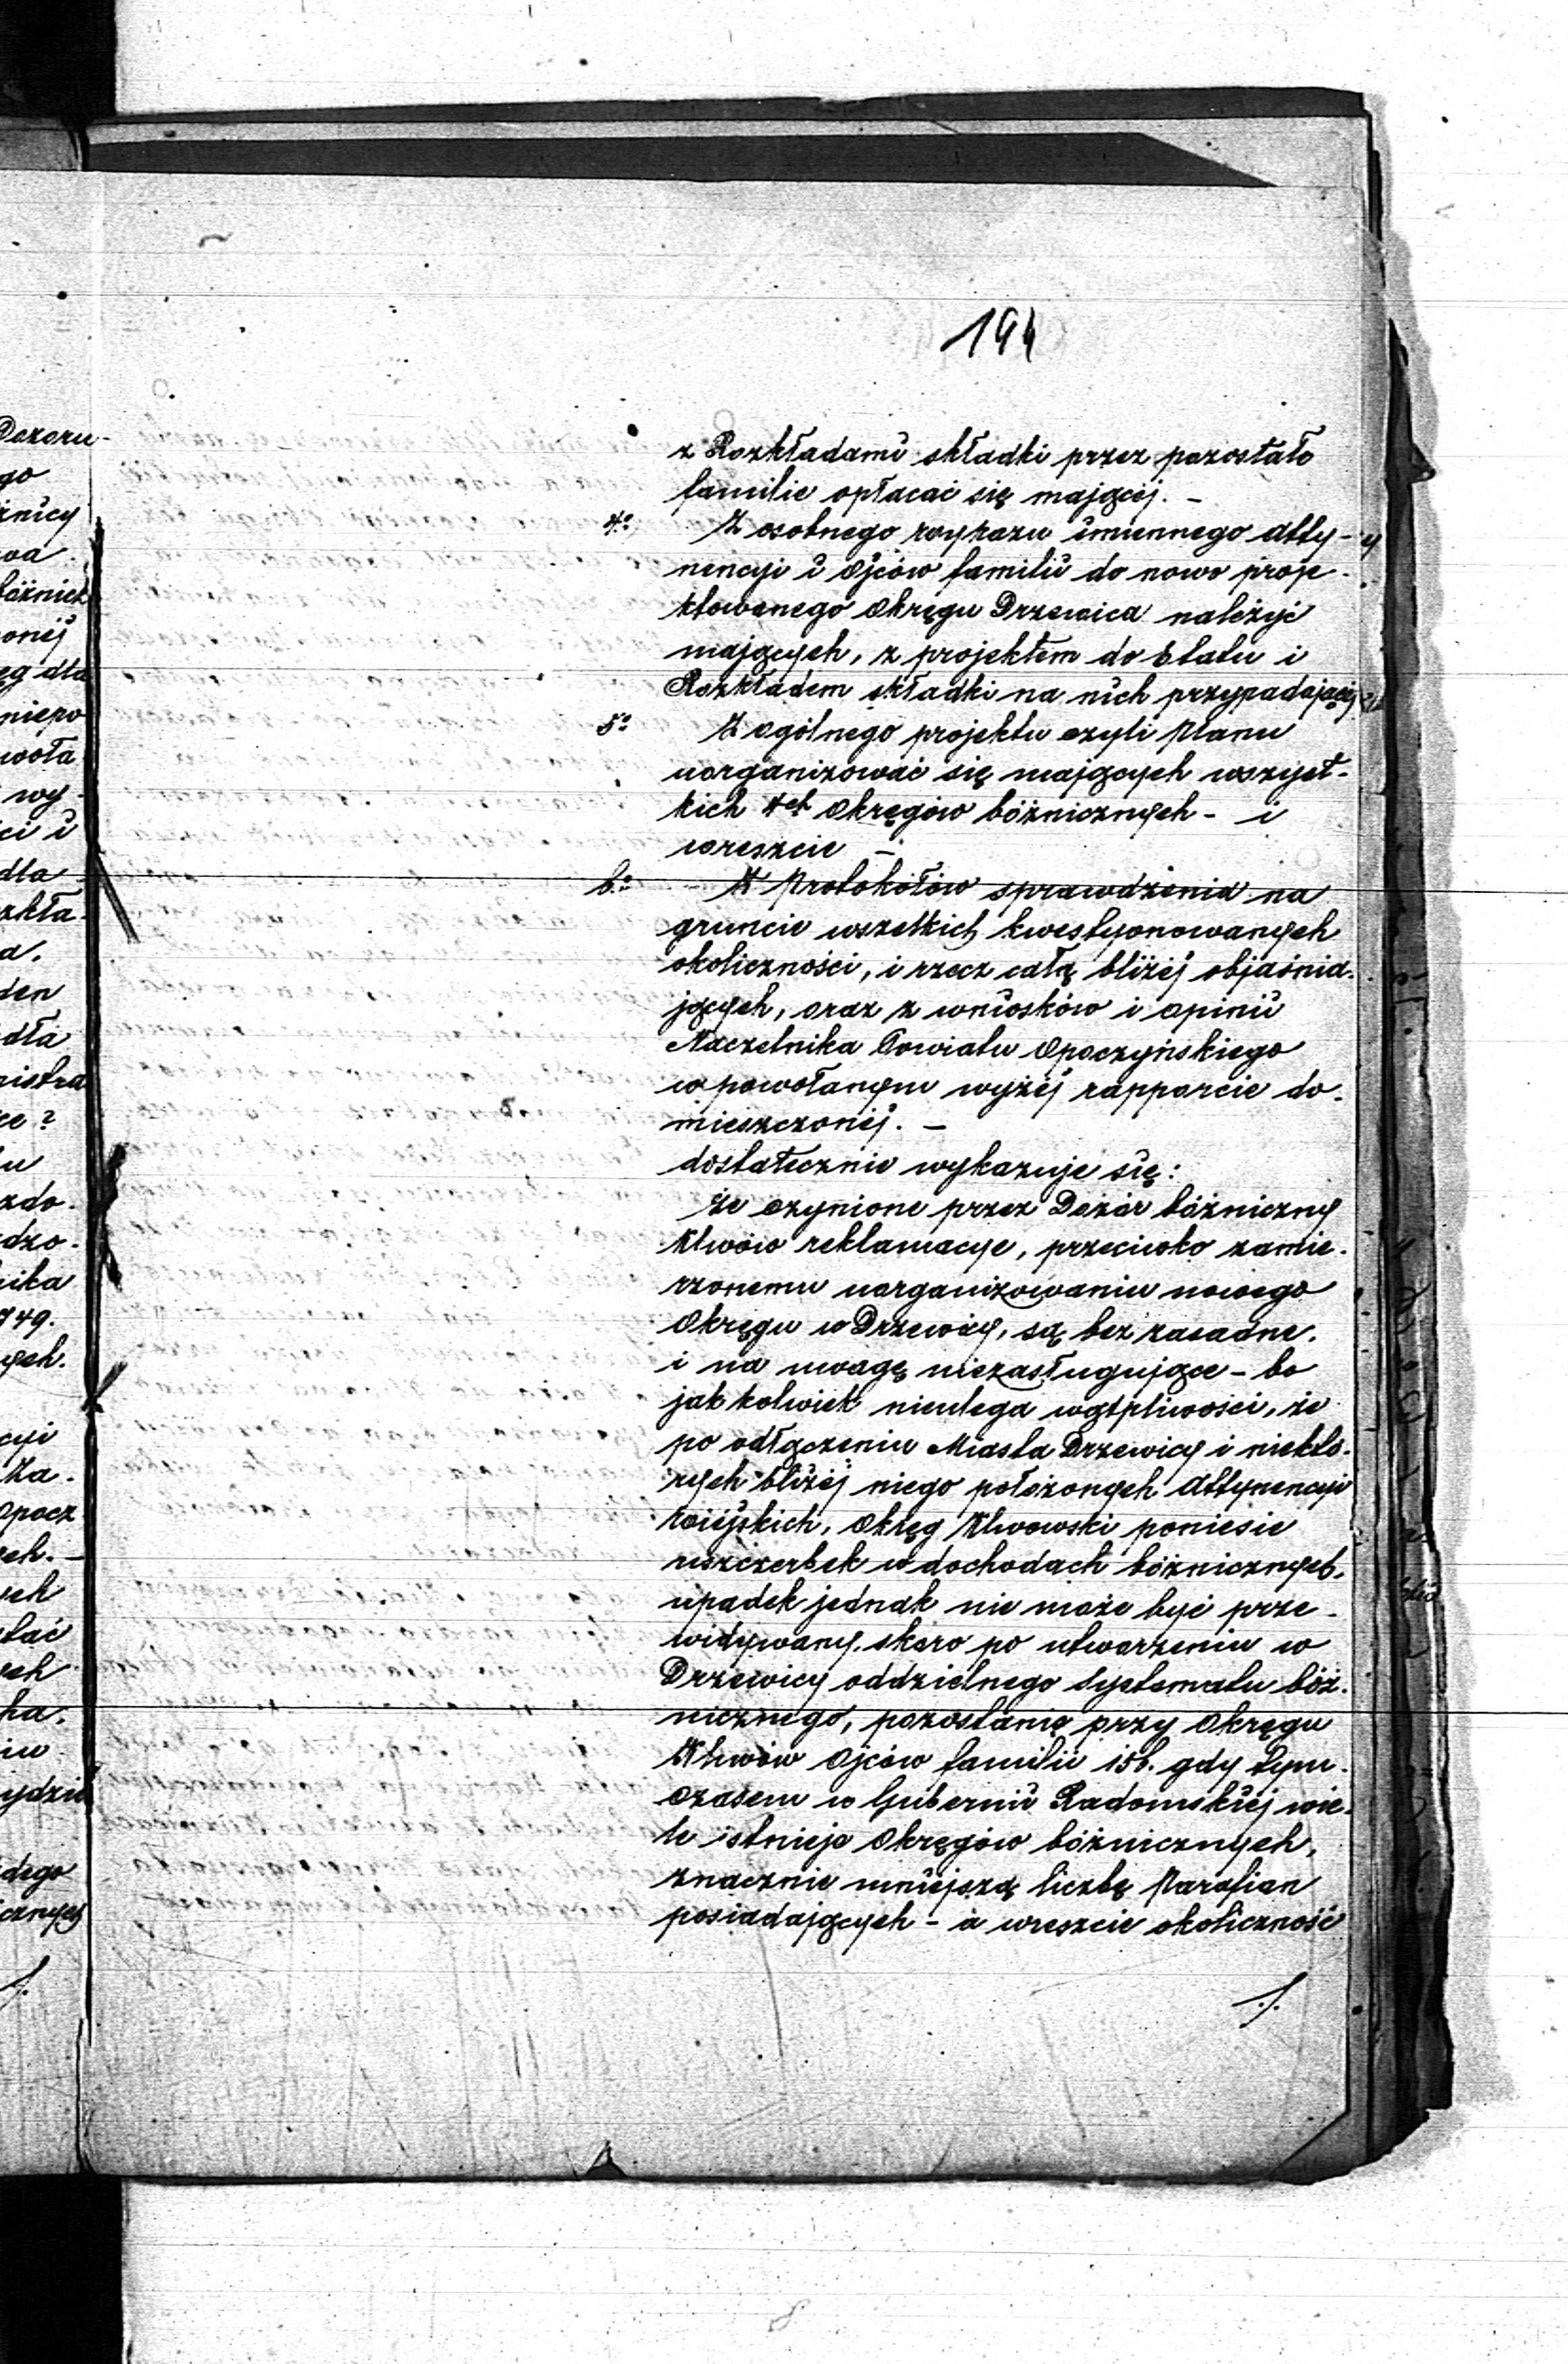 194
z Rozkładami składki przez pozostałe
familie opłacać się mającej. –
4º Z osobnego wykazu imiennego atty-
nencyi i Ojców familii do nowo proje-
ktowanego Okręgu Drzewica należyć
mających, z projektem do Etatu i
Rozkładem składki na nich przypadającej
5º Z ogólnego projektu czyli Planu
uorganizować się mających wszyst-
kich 4ch Okręgów bóżnicznych – i
wreszcie –
6º Z Protokółów sprawdzenia na
gruncie wszelkich kwestyonowanych
okoliczności, i rzecz całą bliżéj objaśnia-
jących, oraz z wniosków i opinii
Naczelnika Powiatu Opoczyńskiego
w powołanym wyżéj rapporcie do-
mieszczonéj. –
dostatecznie wykazuje się:
że czynione przez Dozór bóżniczny
Klwów reklamacye, przeciwko zamie-
rzonemu uorganizowaniu nowego
Okręgu w Drzewicy, są bez zasadne.
i na uwagę niezasługujące – bo
jak kolwiek nieulega wątpliwości, że
po odłączeniu Miasta Drzewicy i niektó-
rych bliżéj niego położonych attynencyi
wiejskich, Okręg Klwowski poniesie
uszczerbek w dochodach bóżnicznych.
upadek jednak nie może być prze-
widywany, skoro po utworzeniu w
Drzewicy oddzielnego Systematu bóż-
nicznego, pozostanie przy Okręgu
Klwów Ojców familii 156. gdy tym-
czasem w Gubernii Radomskiéj wie-
le istnieje Okręgów bóżnicznych,
znacznie mniejszą liczbę Parafian
posiadających – a wreszcie okoliczność
./.